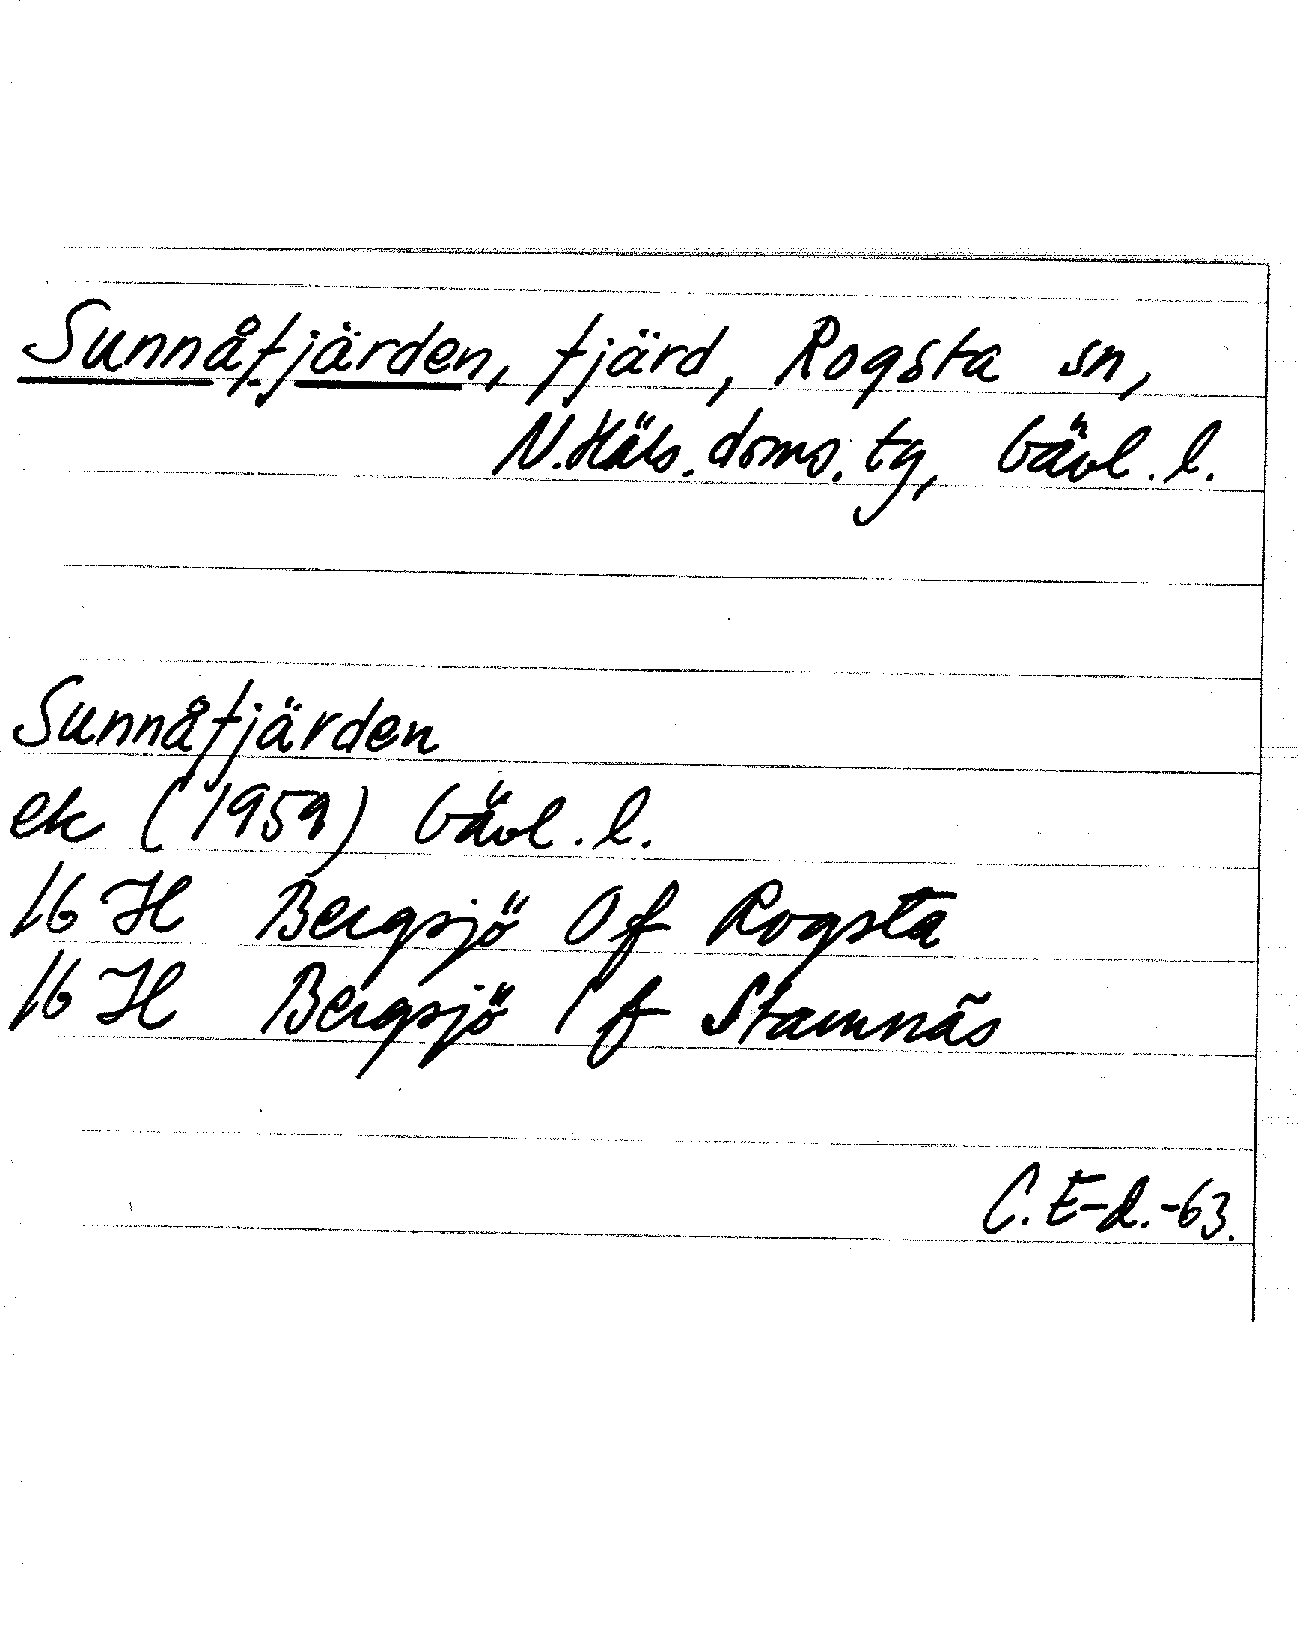 Sunnåfjärden, fjärd, Rogsta sn,
N.Häls.doms.tg, Gävl.l.
Sunnåfjärden
ek (1959) Gävl.l.
16 H Bergsjö 0f Rogsta
16 H Bergsjö 1f Stamnäs
C.E-d.-63.